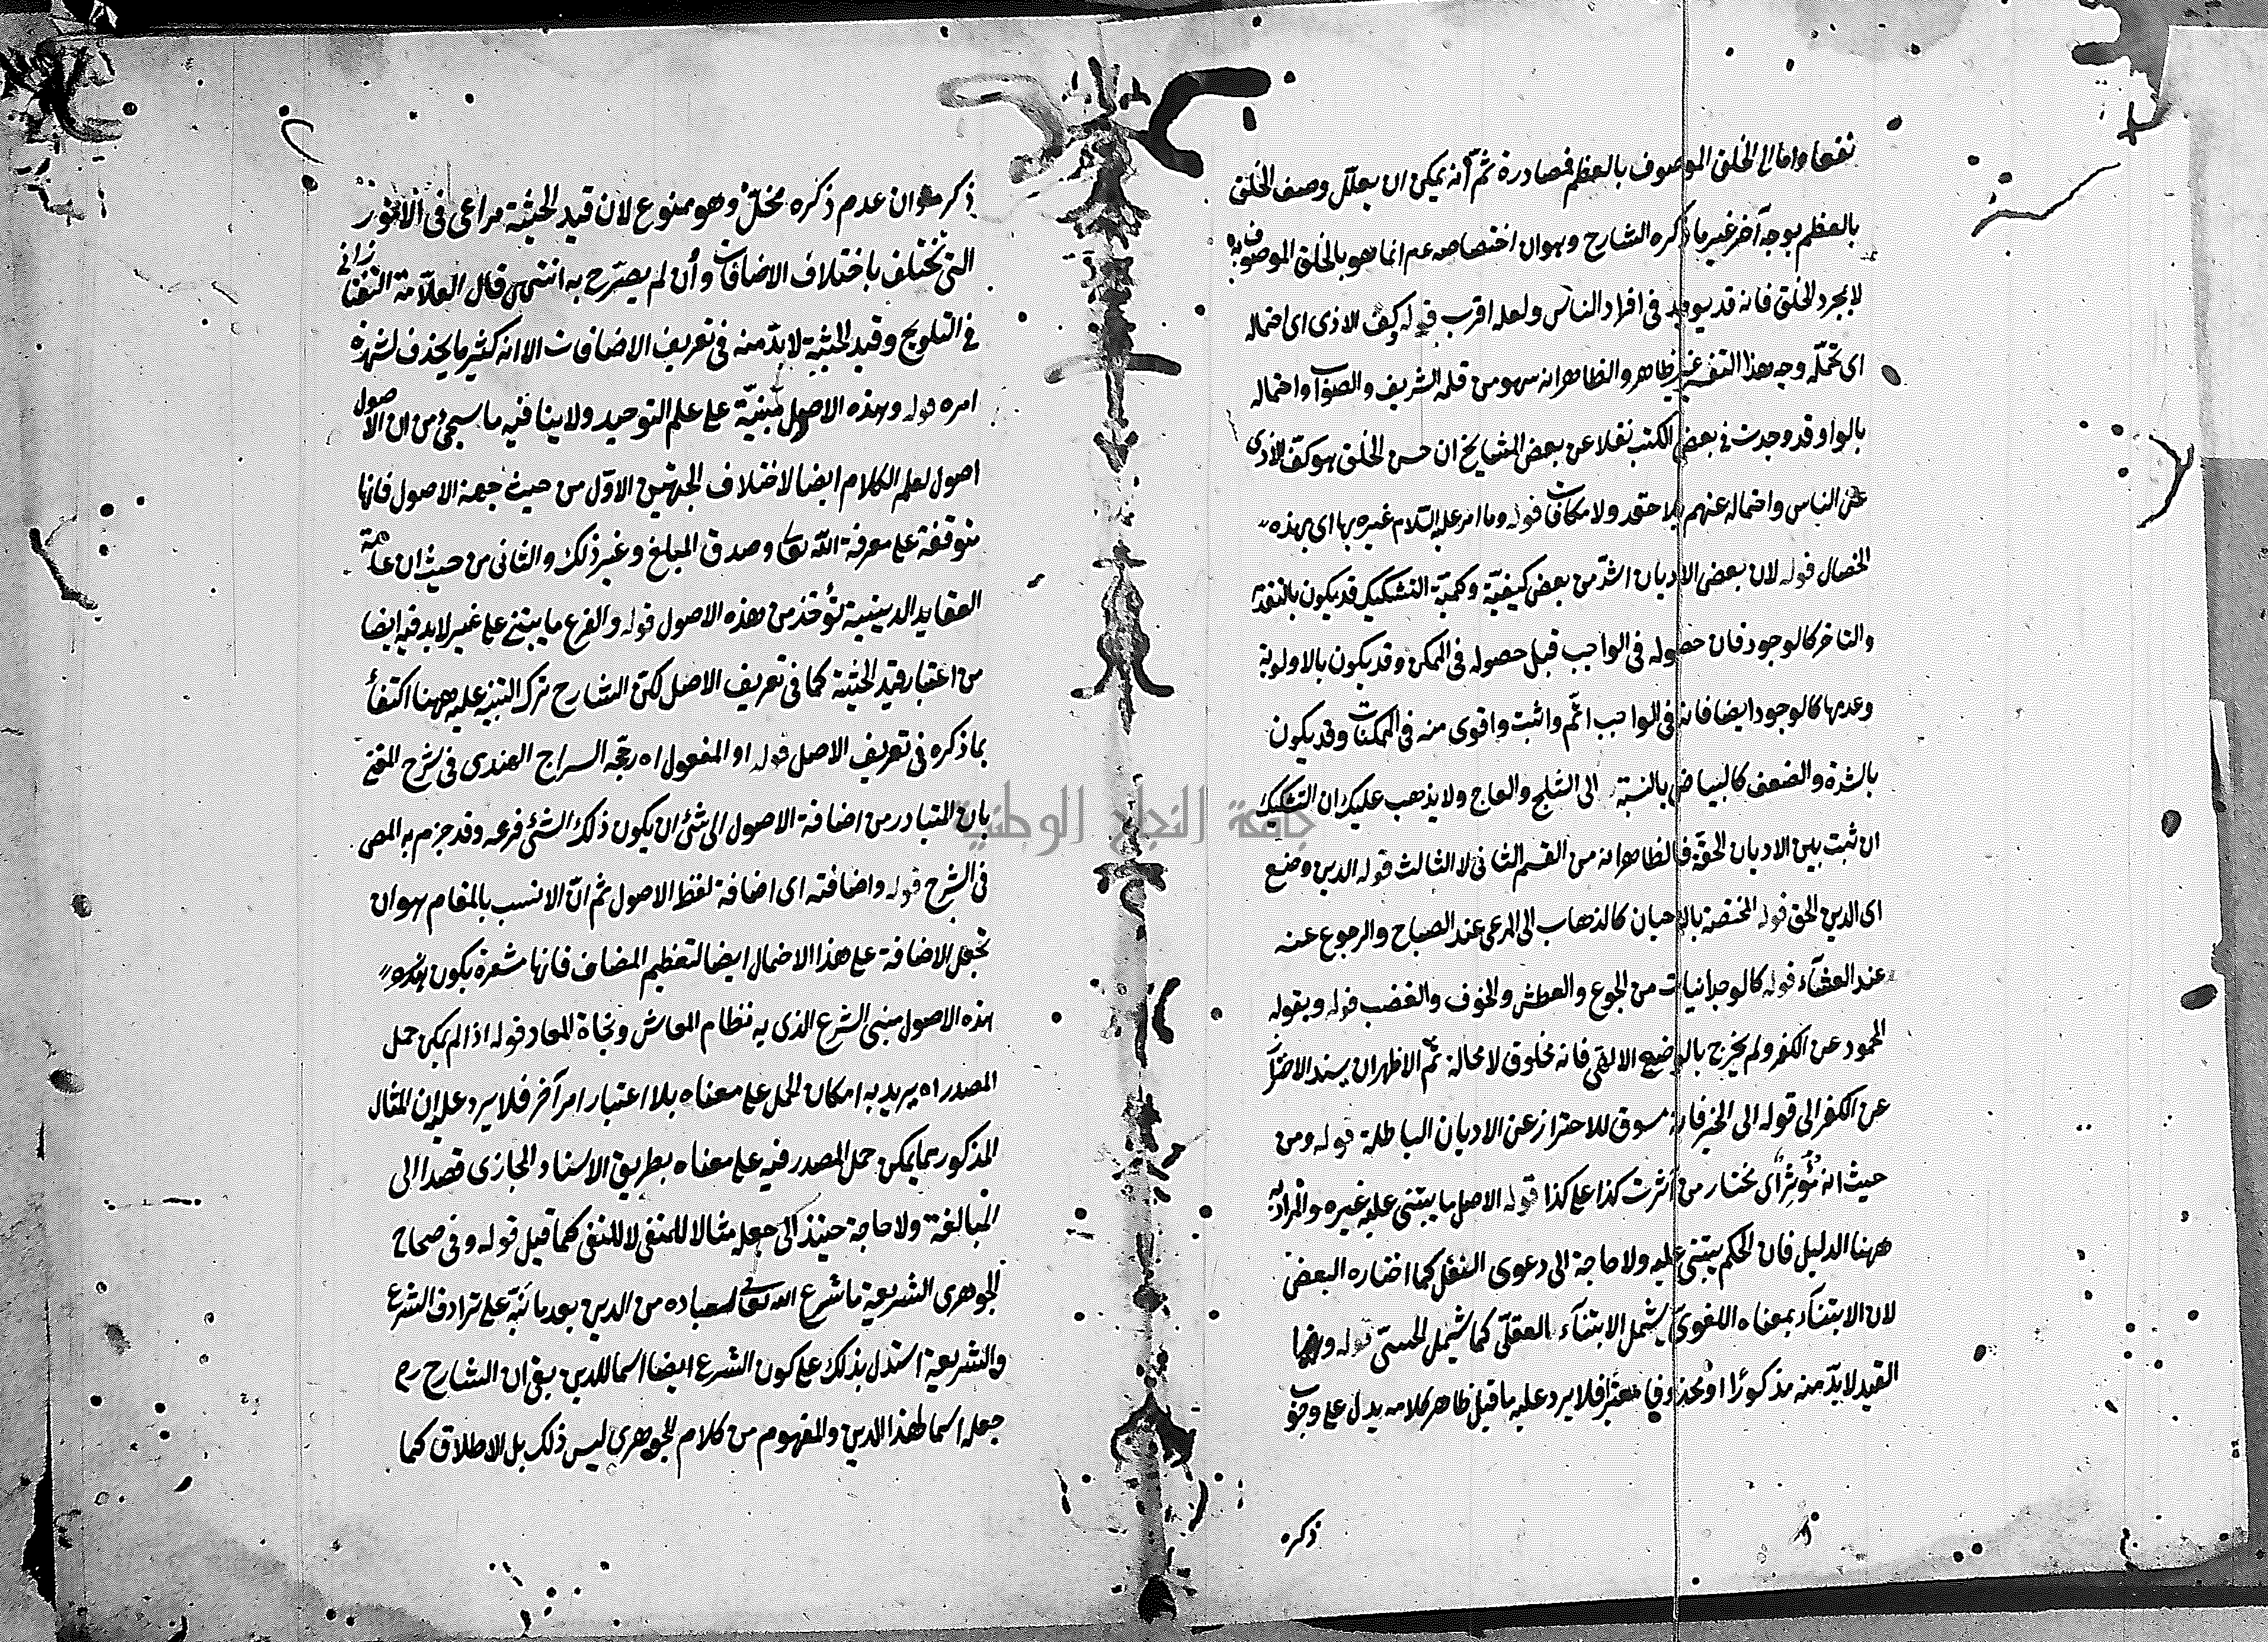 نفعا واما الى الخلق الموصوف بالعظم فمصادرة ثم انه يمكن ان يعلل وصف الخلق
بالعظم بوجه آخر غير ما ذكره الشارح وهو ان اختصاصه عم انما هو بالخلق الموصوف به
لا بمجرد الخلق فانه قد يوجد فى افراد الناس ولعله اقرب قوله كف الاذى اى احتماله
اى تحمله وجه هذا التفسير غير ظاهر والظاهر انه سهو من قلمه الشريف والصواب واحتماله
بالواو وقد وجدت فى بعض الكتب نقلا عن بعض المشايخ ان حسن الخلق هو كف الاذى
عن الناس واحتماله عنهم بلا حقد ولا مكافات قوله وما امر عليه السلام غيره بها اى بهذه
الخصال قوله لان بعض الاديان اشد من بعض كيفية وكمية التشكيك قد يكون بالتقدم
والتاخر كالوجود فان حصوله فى الواجب قبل حصوله فى الممكن وقد يكون بالاولوية
وعدمها كالوجود ايضا فانه فى الواجب اتم واثبت واقوى منه فى الممكنات وقد يكون
بالشدة والضعف كالبياض بالنسبة الى الثلج والعاج ولا يذهب عليك ان التشكيك
ان ثبت بين الاديان الحقة فالظاهر انه من القسم الثانى لا الثالث قوله الدين وضع
اى الدين الحق قوله المختصة بالاحيان كالذهاب الى المرعى عند الصباح والرجوع عنه
عند العشآء قوله كالوجدانيات من الجوع والعطش والخوف والغضب قوله وبقوله
المحمود عن الكفر ولم يخرج بالوضع الالهى فانه مخلوق لا محالة ثم الاظهر ان يسند الاحتراز
عن الكفر الى قوله الى الخير فانه مسوق للاحتراز عن الاديان الباطلة قوله ومن
حيث انه نؤثر اى نختار من آثرت كذا على كذا قوله الاصل ما يبتنى عليه غيره والمراد به
ههنا الدليل فان الحكم يبتنى عليه ولا حاجة الى دعوى النقل كما اختاره البعض
لان الابتنآء بمعناه اللغوى يشمل الابتنآء العقلى كما شمل الحسى قوله وهذا
القيد لا بد منه مذكورا او محذوفا معتبرا فلا يرد عليه ما قيل ظاهر كلامه يدل على وجوب
ذكره
ذكره وان عدم ذكره مخل وهو ممنوع لان قيد الحيثية مراعى فى الامور
التى تختلف باختلاف الاضافات وان لم يصرح به انتهى قال العلامة التفتازانى
فى التلويح وقيد الحيثية لا بد منه فى تعريف الاضافات الا انه كثير ما يحذف لشهرة
امره قوله وهذه الاصول مبنية على علم التوحيد ولا ينافيه ما سيجئ من ان الاصول
اصول لعلم الكلام ايضا لاختلاف الجهتين الاول من حيث جهة الاصول فانها
متوقفة على معرفة الله تعالى وصدق المبلغ وغير ذلك والثانى من حيث ان عامة
العقايد الدينية تؤخذ من هذه الاصول قوله والفرع ما يبتنى على غير لابد فيه ايضا
من اعتبار قيد الحيثية كما فى تعريف الاصل لكن الشارح ترك التنبيه عليه ههنا اكتفآء
بما ذكره فى تعريف الاصل قوله او المفعول اه رجحه السراج الهندى فى شرح المغنى
بان المتبادر من اضافة الاصول الى شئ ان يكون ذلك الشئ فرعه وقد جزم به المص
فى الشرح قوله واضافته اى اضافة لفظ الاصول ثم ان الانسب بالمقام هو ان
تجعل الاضافة على هذا الاحتمال ايضا لتعظيم المضاف فانها مشعرة بكون هذه
هذه الاصول مبنى الشرع الذى به نظام المعاش ونجاة المعاد قوله اذا لم يكن حمل
المصدر اه يريد به امكان الحمل على معناه بلا اعتبار امر آخر فلا يرد عليه ان المثال
المذكور مما يمكن حمل المصدر فيه على معناه بطريق الاسناد المجازى قصدا الى
المبالغة ولا حاجة حينئذ الى جعله مثالا للمنفى لا للنفى كما قيل قوله وفى صحاح
الجوهرى الشريعة ما شرع الله تعالى لعباده من الدين بعد ما نبه على ترادف الشرع
والشريعة استدل بذلك على كون الشرع ايضا اسما للدين بقى ان الشارح ره
جعله اسما لهذا الدين والمفهوم من كلام الجوهرى ليس ذلك بل الاطلاق كما
جامعة النجاح الوطنية